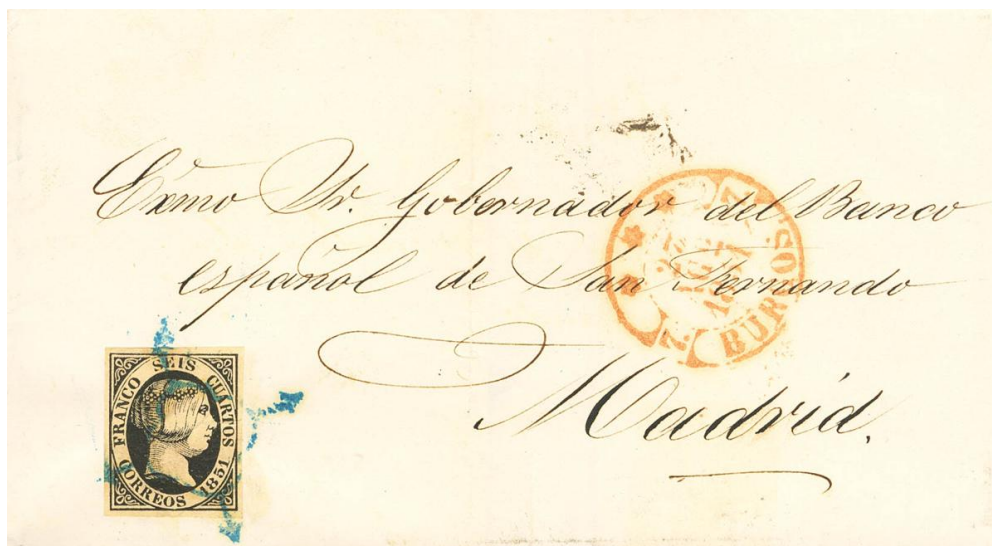 Exmo Sr. Gobernador del Banco
español de San Fernando
Madrid.
BURGOS
FRANCO SEIS CUARTOS
CORREOS 1851